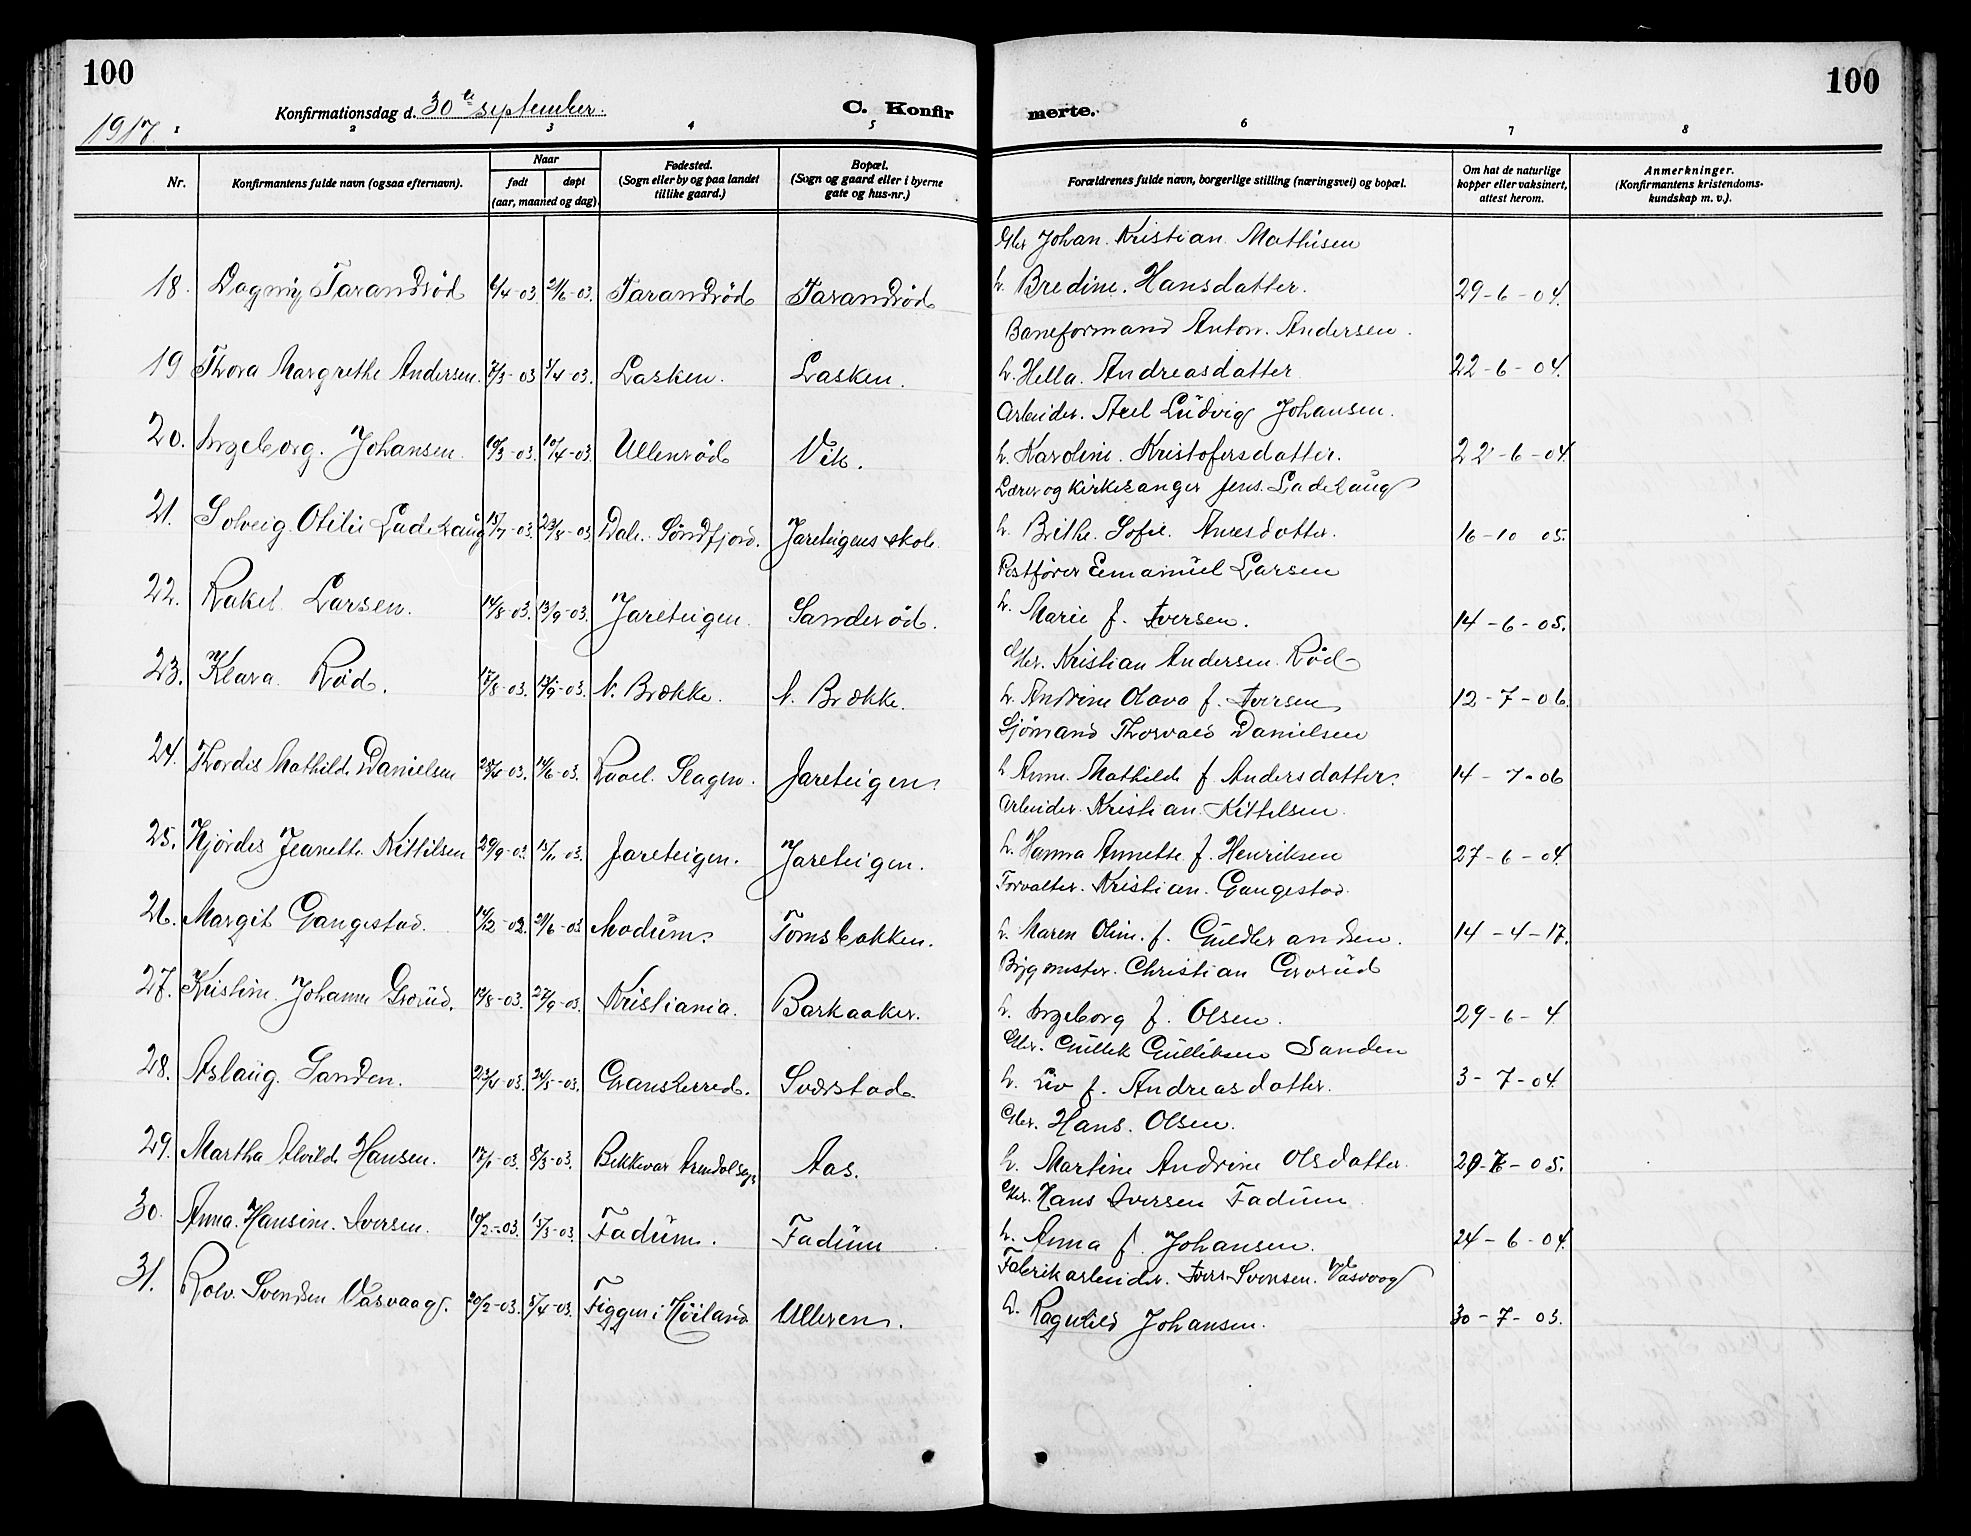 100
1917.
Konfirmationsdag d. 30te september.
C. Konfirmerte.
100
1 2 3 4 5 6 7 8
Nr. Konfirmantens fulde navn (ogsaa efternavn). Naar født døpt (aar, maaned og dag). Fødested. (Sogn eller by og paa landet tillike gaard.) Bopæl. (Sogn og gaard eller i byerne gate og hus-nr.) Forældrenes fulde navn, borgerlige stilling (næringsvei) og bopæl. Om hat de naturlige kopper eller vaksinert, attest herom. Anmerkninger. (Konfirmantens kristendomskundskap m. v.).
Gbr. Johan. Kristian. Mathisen
18. Dagny Tarandrød 6/4-03. 21/6-03. Tarandrød Tarandrød h. Bredine. Hansdatter. 29-6-04.
Baneformand Anton. Andersen.
19 Thora Margrethe Andersen. 7/3-03 5/4-03. Lasken. Lasken. h. Hella. Andreasdatter 22-6-04.
Arbeider. Axel Ludvig Johansen.
20. Ingeborg. Johansen. 10/3-03. 10/4-03. Ullenrød Vik. h. Karoline. Kristofersdatter. 22-6-04.
Lærer og Kirkesanger Jens. Ladehaug
21. Solveig. Otilie Ladehaug 15/7-03. 23/8-03. Dale. Søndfjord. Jareteigens skole. h. Brithe. Sofie. 16-10 05.
Postfører Emanuel Larsen
22. Rakel. Larsen. 14/8-03. 13/9-03. Jareteigen. Sanderød. h. Marie f. Iversen. 14-6-05.
Gbr. Kristian Andersen. Rød
23. Klara. Rød. 17/8-03. 13/9-03. N. Brække. N. Brække. h. Andrine Olava f. Iversen 12-7-06.
Sjømand Thorvald Danielsen
24. Thordis Mathilde Danielsen 28/4-03. 14/6-03. Rael. Slagen. Jareteigen. h Anne. Mathilde f. Andersdatter. 14-7-06
Arbeider. Kristian. Kittilsen.
25. Hjørdis Jeanette Kittilsen 29/9-03. 15/11 03. Jareteigen. Jareteigen. h. Hanna Annette f. Henriksen 27-6-04.
Forvalter. Kristian. Gangestad.
26. Margit Gangestad. 14/12-02. 21/6-03. Modum. Tomsbakken. h. Maren Oline. f. Guldbrandsen. 14-4-17.
Bygmester. Christian Grorud
27. Kristine. Johanne Grorud. 12/8-03. 27/9-03. Kristiania. Barkaaker. h. Ingeborg f. Olsen. 29-6-4
Gbr. Gullik Gulliksen Sanden
28. Aslaug. Sanden. 23/4-03. 24/5-03. Gransherred. Sværstad. h. Liv f. Andreasdatter. 3-7-04.
Gbr. Hans. Olsen.
29. Martha Alvilde Hansen. 17/1-03. 8/3-03. Aas. h. Martine Andrine Olsdatter. -05.
Gbr. Hans Iversen Fadum.
30. Anna. Hansine. Iversen. 10/2-03. 15/3-03. Fadum. Fadum h. Anna f. Johansen. 24-6-04.
Fabrikarbeider. Iver Svensen. Vasvaag
31. Rolv. Svendsen Vasvaag. 20/2-03. 5/4-03. Figgen i Høiland Ulleren. h. Ragnhild Johansen. 30-7-03.